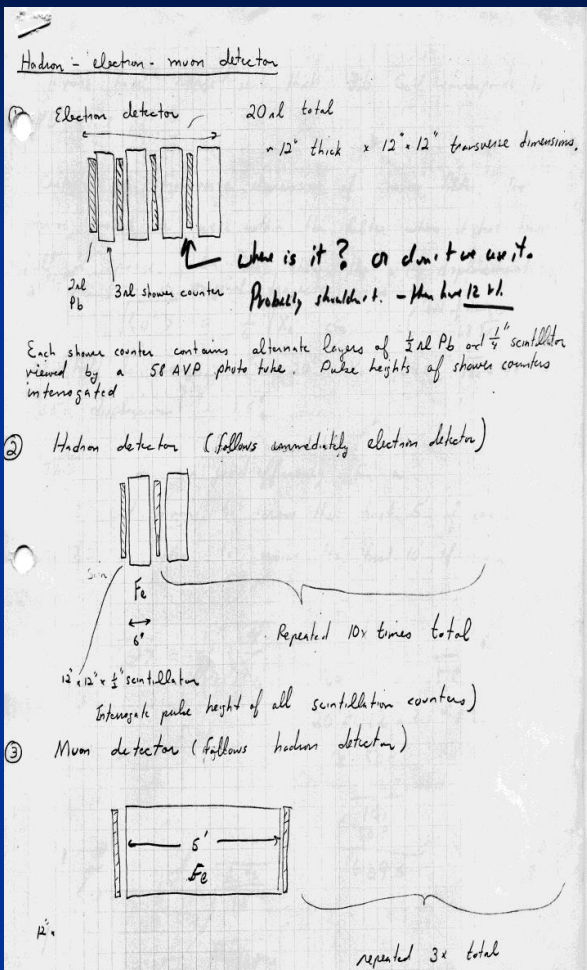 Hadron - electron - muon detector
① Electron detector 20 rl total
~ 12" thick x 12" x 12" transverse dimensions.
2rl Pb
3rl shower counter
where is it? or don't we use it.
Probably shouldn't. - then have 12 rl.
Each shower counter contains alternate layers of ½ rl Pb and ¼" scintillator
viewed by a 58 AVP photo tube. Pulse heights of shower counters
interrogated
② Hadron detector (follows immediately electron detector)
Fe
6"
Repeated 10x times total
12" x 12" x ½" scintillator
Interrogate pulse height of all scintillation counters)
③ Muon detector (follows hadron detector)
5'
Fe
12" x
repeated 3x total